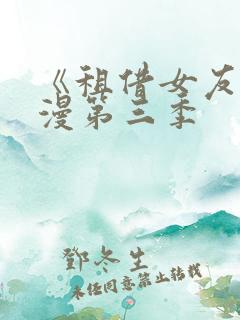 《租借女友
漫第三季
鄧冬生
未经同意禁止转载